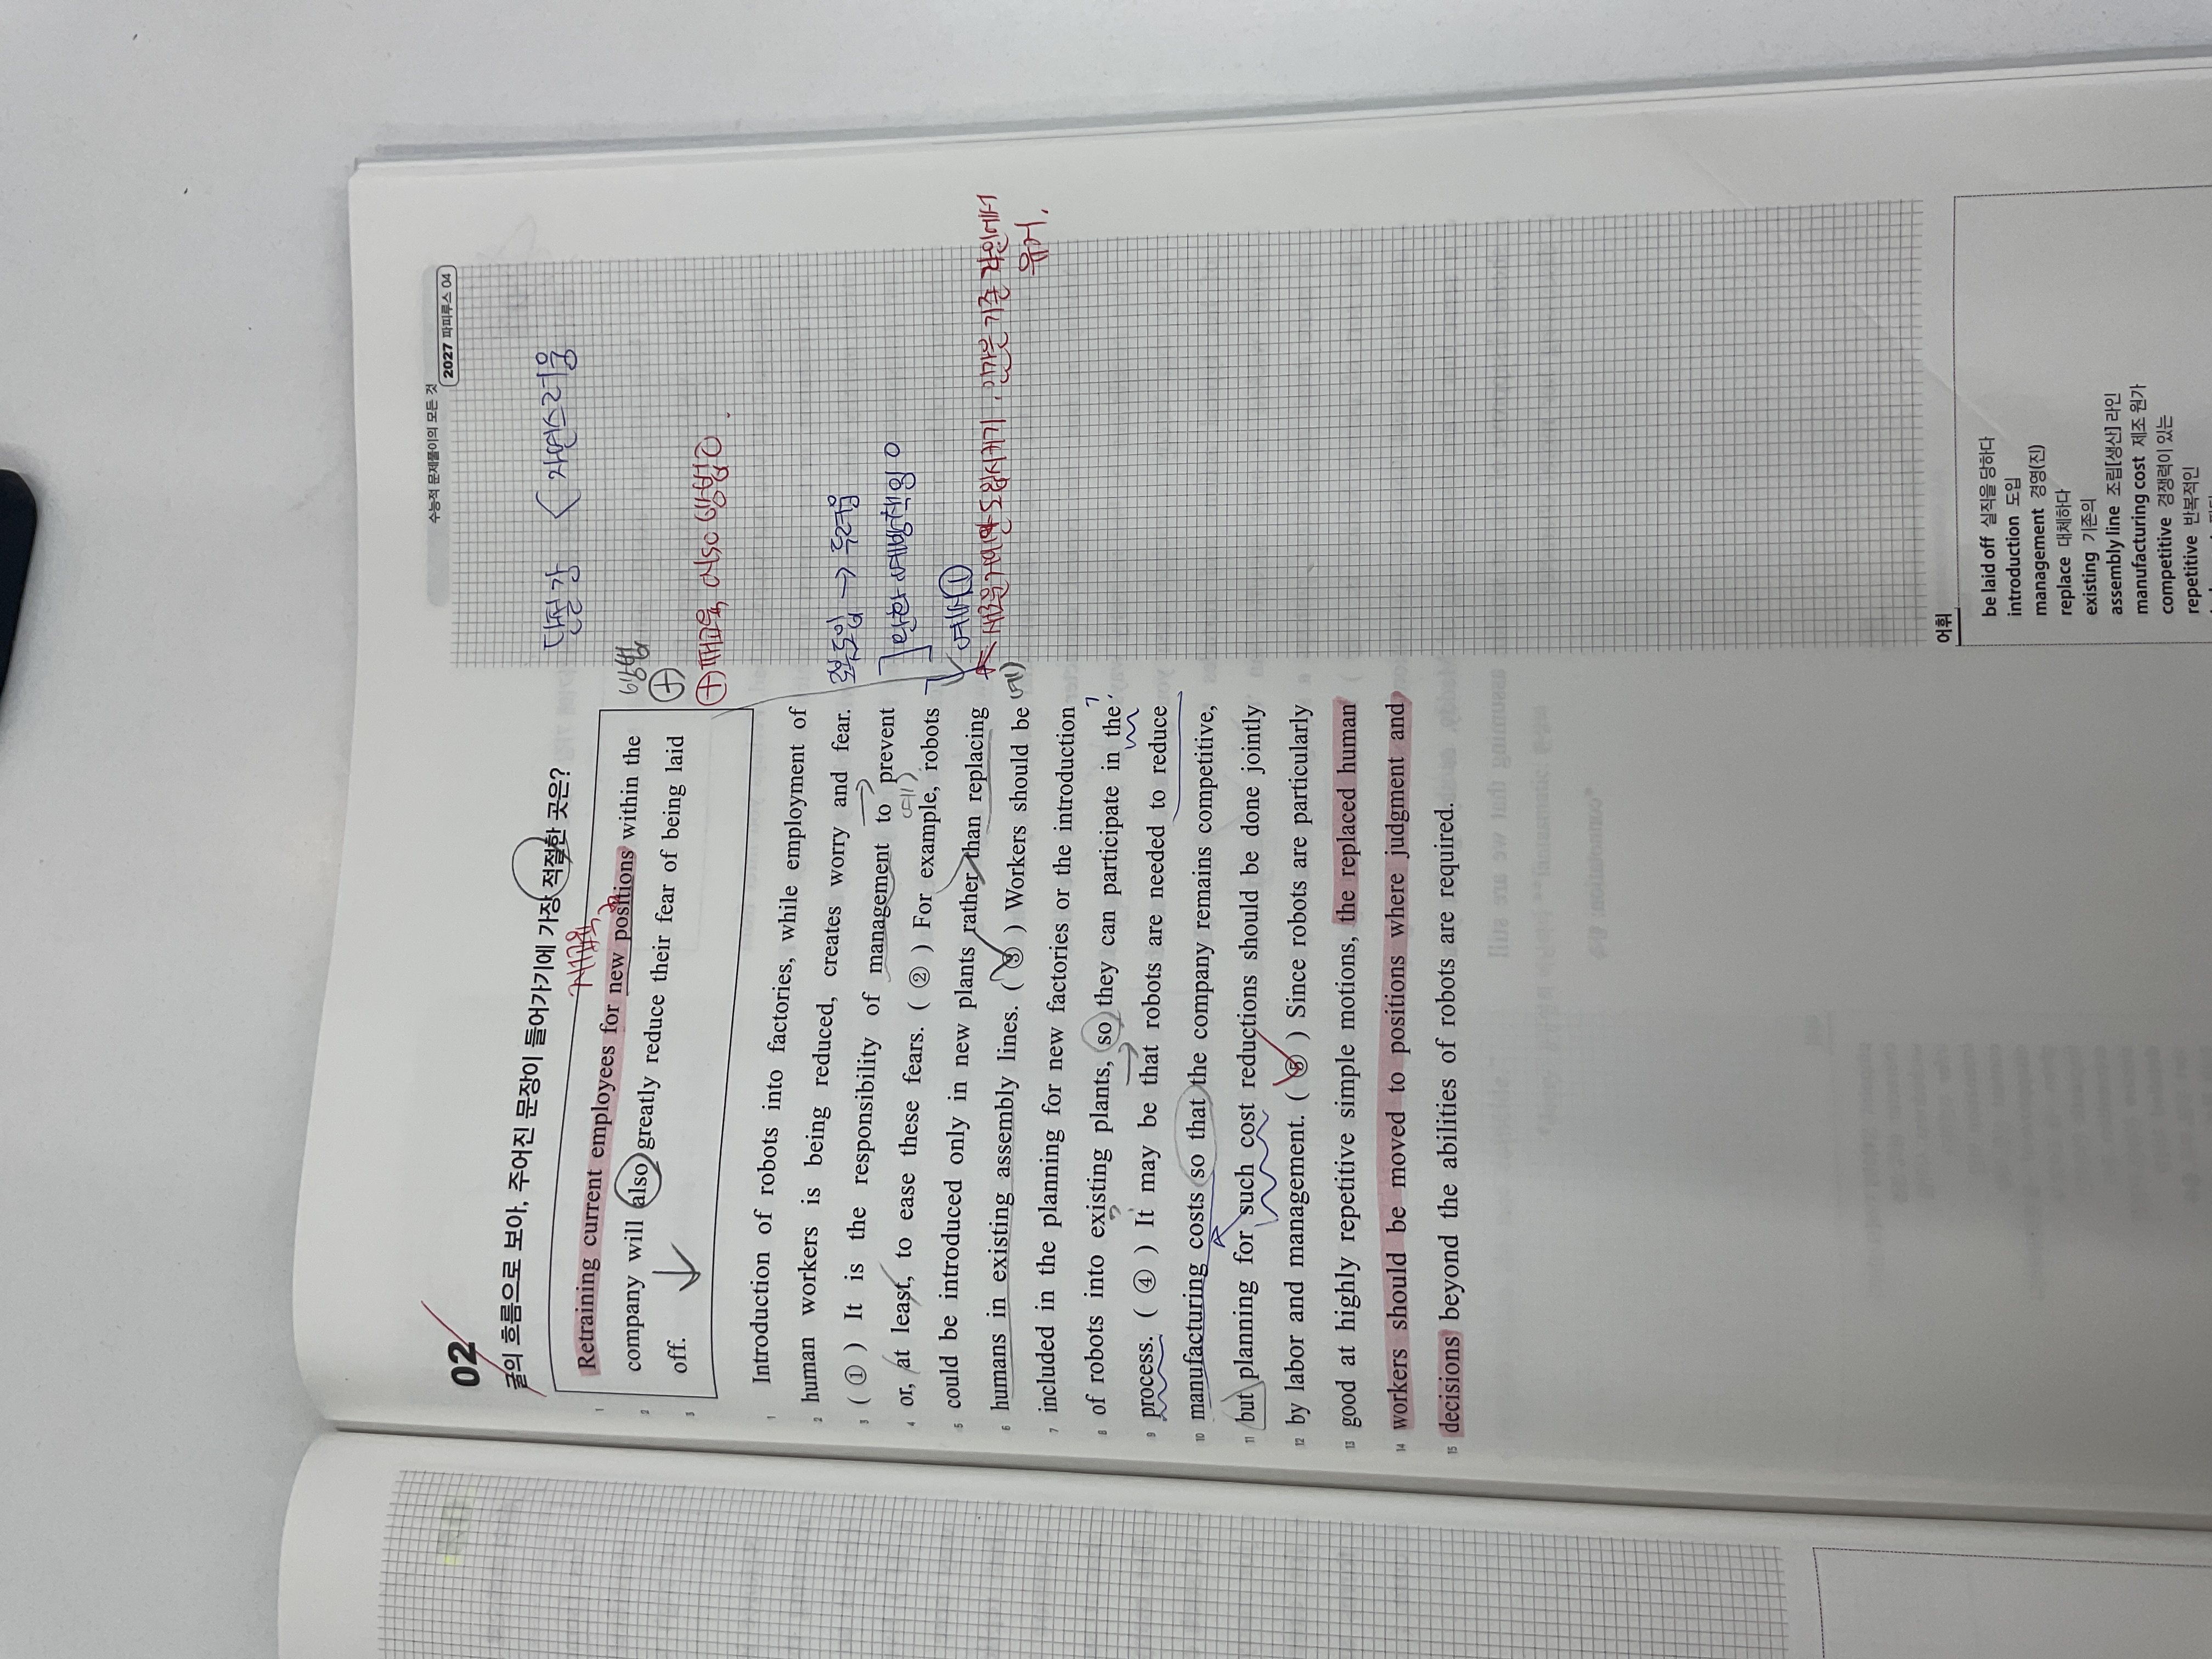 수능적 문제풀이의 모든 것
2027 파피루스 04
02
글의 흐름으로 보아, 주어진 문장이 들어가기에 가장 적절한 곳은?
단절감 < 자연스러움
재교육
1 Retraining current employees for new positions within the
방법
2 company will also greatly reduce their fear of being laid
+
3 off.
+ 재교육 also 방법 O.
1 Introduction of robots into factories, while employment of
2 human workers is being reduced, creates worry and fear.
로봇도입 → 두려움
3 ( ① ) It is the responsibility of management to prevent
예방책임 O
4 or, at least, to ease these fears. ( ② ) For example, robots
예시 ①
5 could be introduced only in new plants rather than replacing
인간은 기존 라인에서
유지.
6 humans in existing assembly lines. ( ③ ) Workers should be
7 included in the planning for new factories or the introduction
8 of robots into existing plants, so they can participate in the
9 process. ( ④ ) It may be that robots are needed to reduce
10 manufacturing costs so that the company remains competitive,
11 but planning for such cost reductions should be done jointly
12 by labor and management. ( ⑤ ) Since robots are particularly
13 good at highly repetitive simple motions, the replaced human
14 workers should be moved to positions where judgment and
15 decisions beyond the abilities of robots are required.
어휘
be laid off 실직을 당하다
introduction 도입
management 경영(진)
replace 대체하다
existing 기존의
assembly line 조립[생산] 라인
manufacturing cost 제조 원가
competitive 경쟁력이 있는
repetitive 반복적인